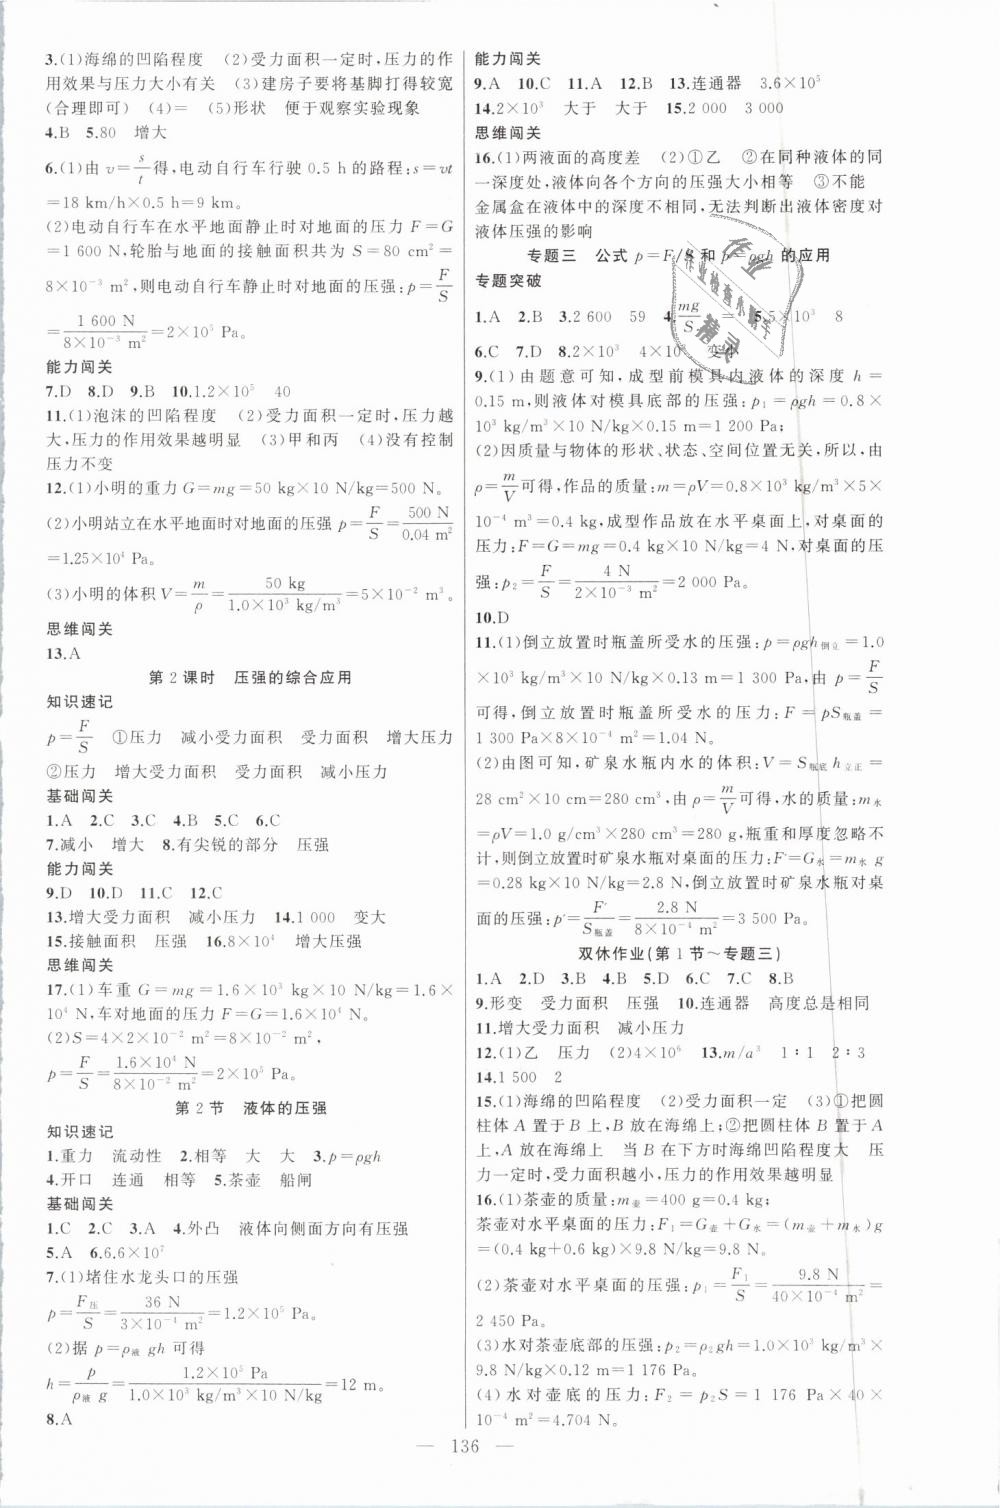 3.(1)海绵的凹陷程度 (2)受力面积一定时,压力的作
用效果与压力大小有关 (3)建房子要将基脚打得较宽
(合理即可) (4)= (5)形状 便于观察实验现象
4.B 5.80 增大
6.(1)由 v=s/t得,电动自行车行驶 0.5 h 的路程:s=vt
=18 km/h×0.5 h=9 km。
(2)电动自行车在水平地面静止时对地面的压力 F=G
=1 600 N,轮胎与地面的接触面积共为 S=80 cm²=
8×10⁻³ m²,则电动自行车静止时对地面的压强:p=F/S
=1 600 N/8×10⁻³ m²=2×10⁵ Pa。
能力闯关
7.D 8.D 9.B 10.1.2×10⁵ 40
11.(1)泡沫的凹陷程度 (2)受力面积一定时,压力越
大,压力的作用效果越明显 (3)甲和丙 (4)没有控制
压力不变
12.(1)小明的重力 G=mg=50 kg×10 N/kg=500 N。
(2)小明站立在水平地面时对地面的压强 p=F/S=500 N/0.04 m²
=1.25×10⁴ Pa。
(3)小明的体积 V=m/ρ=50 kg/1.0×10³ kg/m³=5×10⁻² m³。
思维闯关
13.A
第 2 课时 压强的综合应用
知识速记
p=F/S ①压力 减小受力面积 受力面积 增大压力
②压力 增大受力面积 受力面积 减小压力
基础闯关
1.A 2.C 3.C 4.B 5.C 6.C
7.减小 增大 8.有尖锐的部分 压强
能力闯关
9.D 10.D 11.C 12.C
13.增大受力面积 减小压力 14.1 000 变大
15.接触面积 压强 16.8×10⁴ 增大压强
思维闯关
17.(1)车重 G=mg=1.6×10³ kg×10 N/kg=1.6×
10⁴ N,车对地面的压力 F=G=1.6×10⁴ N。
(2)S=4×2×10⁻² m²=8×10⁻² m²,
p=F/S=1.6×10⁴ N/8×10⁻² m²=2×10⁵ Pa。
第 2 节 液体的压强
知识速记
1.重力 流动性 2.相等 大 大 3.p=ρgh
4.开口 连通 相等 5.茶壶 船闸
基础闯关
1.C 2.C 3.A 4.外凸 液体向侧面方向有压强
5.A 6.6.6×10⁷
7.(1)堵住水龙头口的压强
p=F压/S=36 N/3×10⁻⁴ m²=1.2×10⁵ Pa。
(2)据 p=ρ液 gh 可得
h=p/ρ液 g=1.2×10⁵ Pa/1.0×10³ kg/m³×10 N/kg=12 m。
8.A
能力闯关
9.A 10.C 11.A 12.B 13.连通器 3.6×10⁵
14.2×10³ 大于 大于 15.2 000 3 000
思维闯关
16.(1)两液面的高度差 (2)①乙 ②在同种液体的同
一深度处,液体向各个方向的压强大小相等 ③不能
金属盒在液体中的深度不相同,无法判断出液体密度对
液体压强的影响
专题三 公式 p=F/S 和 p=ρgh 的应用
专题突破
1.A 2.B 3.2 600 59 4.mg/S = 5.5×10³ 8
6.C 7.D 8.2×10³ 4×10³ 变小
9.(1)由题意可知,成型前模具内液体的深度 h=
0.15 m,则液体对模具底部的压强:p₁=ρgh=0.8×
10³ kg/m³×10 N/kg×0.15 m=1 200 Pa;
(2)因质量与物体的形状、状态、空间位置无关,所以,由
ρ=m/V可得,作品的质量:m=ρV=0.8×10³ kg/m³×5×
10⁻⁴ m³=0.4 kg,成型作品放在水平桌面上,对桌面的
压力:F=G=mg=0.4 kg×10 N/kg=4 N,对桌面的压
强:p₂=F/S=4 N/2×10⁻³ m²=2 000 Pa。
10.D
11.(1)倒立放置时瓶盖所受水的压强:p=ρgh倒立=1.0
×10³ kg/m³×10 N/kg×0.13 m=1 300 Pa,由 p=F/S
可得,倒立放置时瓶盖所受水的压力:F=pS瓶盖=
1 300 Pa×8×10⁻⁴ m²=1.04 N。
(2)由图可知,矿泉水瓶内水的体积:V=S瓶底 h立正=
28 cm²×10 cm=280 cm³,由 ρ=m/V可得,水的质量:m水
=ρV=1.0 g/cm³×280 cm³=280 g,瓶重和厚度忽略不
计,则倒立放置时矿泉水瓶对桌面的压力:F′=G水=m水 g
=0.28 kg×10 N/kg=2.8 N,倒立放置时矿泉水瓶对桌
面的压强:p′=F′/S瓶盖=2.8 N/8×10⁻⁴ m²=3 500 Pa。
双休作业(第 1 节～专题三)
1.A 2.D 3.B 4.B 5.D 6.C 7.C 8.B
9.形变 受力面积 压强 10.连通器 高度总是相同
11.增大受力面积 减小压力
12.(1)乙 压力 (2)4×10⁶ 13.m/a³ 1∶1 2∶3
14.1 500 2
15.(1)海绵的凹陷程度 (2)受力面积一定 (3)①把圆
柱体 A 置于 B 上,B 放在海绵上;②把圆柱体 B 置于 A
上,A 放在海绵上 当 B 在下方时海绵凹陷程度大 压
力一定时,受力面积越小,压力的作用效果越明显
16.(1)茶壶的质量:m壶=400 g=0.4 kg;
茶壶对水平桌面的压力:F₁=G壶+G水=(m壶+m水)g
=(0.4 kg+0.6 kg)×9.8 N/kg=9.8 N。
(2)茶壶对水平桌面的压强:p₁=F₁/S=9.8 N/40×10⁻⁴ m²=
2 450 Pa。
(3)水对茶壶底部的压强:p₂=ρ₂gh=1.0×10³ kg/m³×
9.8 N/kg×0.12 m=1 176 Pa。
(4)水对壶底的压力:F₂=p₂S=1 176 Pa×40×
10⁻⁴ m²=4.704 N。
— 136 —
作业
作业检查小助手
精灵